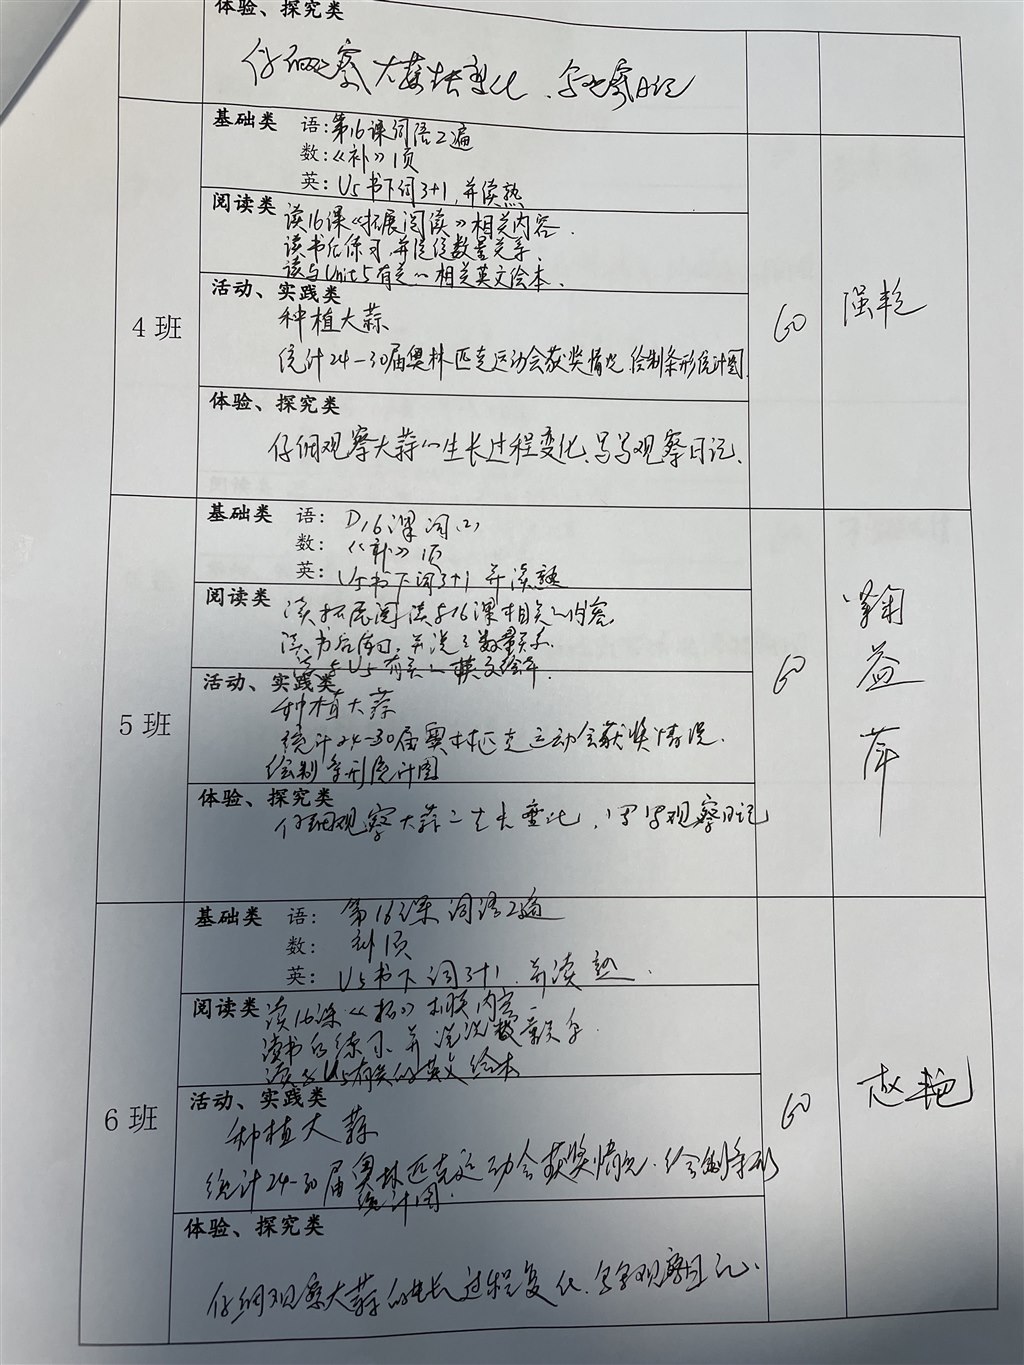 体验、探究类
仔细观察大蒜生长变化、写观察日记
4班
基础类 语:第16课词语2遍
数:《补》1页
英:U5书下词3+1,并读熟
阅读类 读16课《拓展阅读》相关内容.
读书后练习,并说说数量关系.
读与Unit5有关的相关英文绘本.
活动、实践类
种植大蒜
统计24-30届奥林匹克运动会获奖情况.绘制条形统计图.
体验、探究类
仔细观察大蒜的生长过程变化、写写观察日记.
60
强乾
5班
基础类 语: D16课词(2)
数: 《补》1页
英: U5书下词3+1 并读熟
阅读类 读拓展阅读与16课相关的内容
读书后练习,并说说数量关系.
读与U5有关的英文绘本.
活动、实践类
种植大蒜
统计24-30届奥林匹克运动会获奖情况.
绘制条形统计图
体验、探究类
仔细观察大蒜的生长变化,写写观察日记
60
鞠
益
萍
6班
基础类 语: 第16课词语2遍
数: 补1页
英: U5书下词3+1,并读熟.
阅读类 读16课《拓》相关内容
读书后练习、并说说数量关系.
读与U5有关的英文绘本
活动、实践类
种植大蒜
统计24-30届奥林匹克运动会获奖情况.绘制条形
统计图.
体验、探究类
仔细观察大蒜的生长过程变化.写写观察日记.
60
赵艳